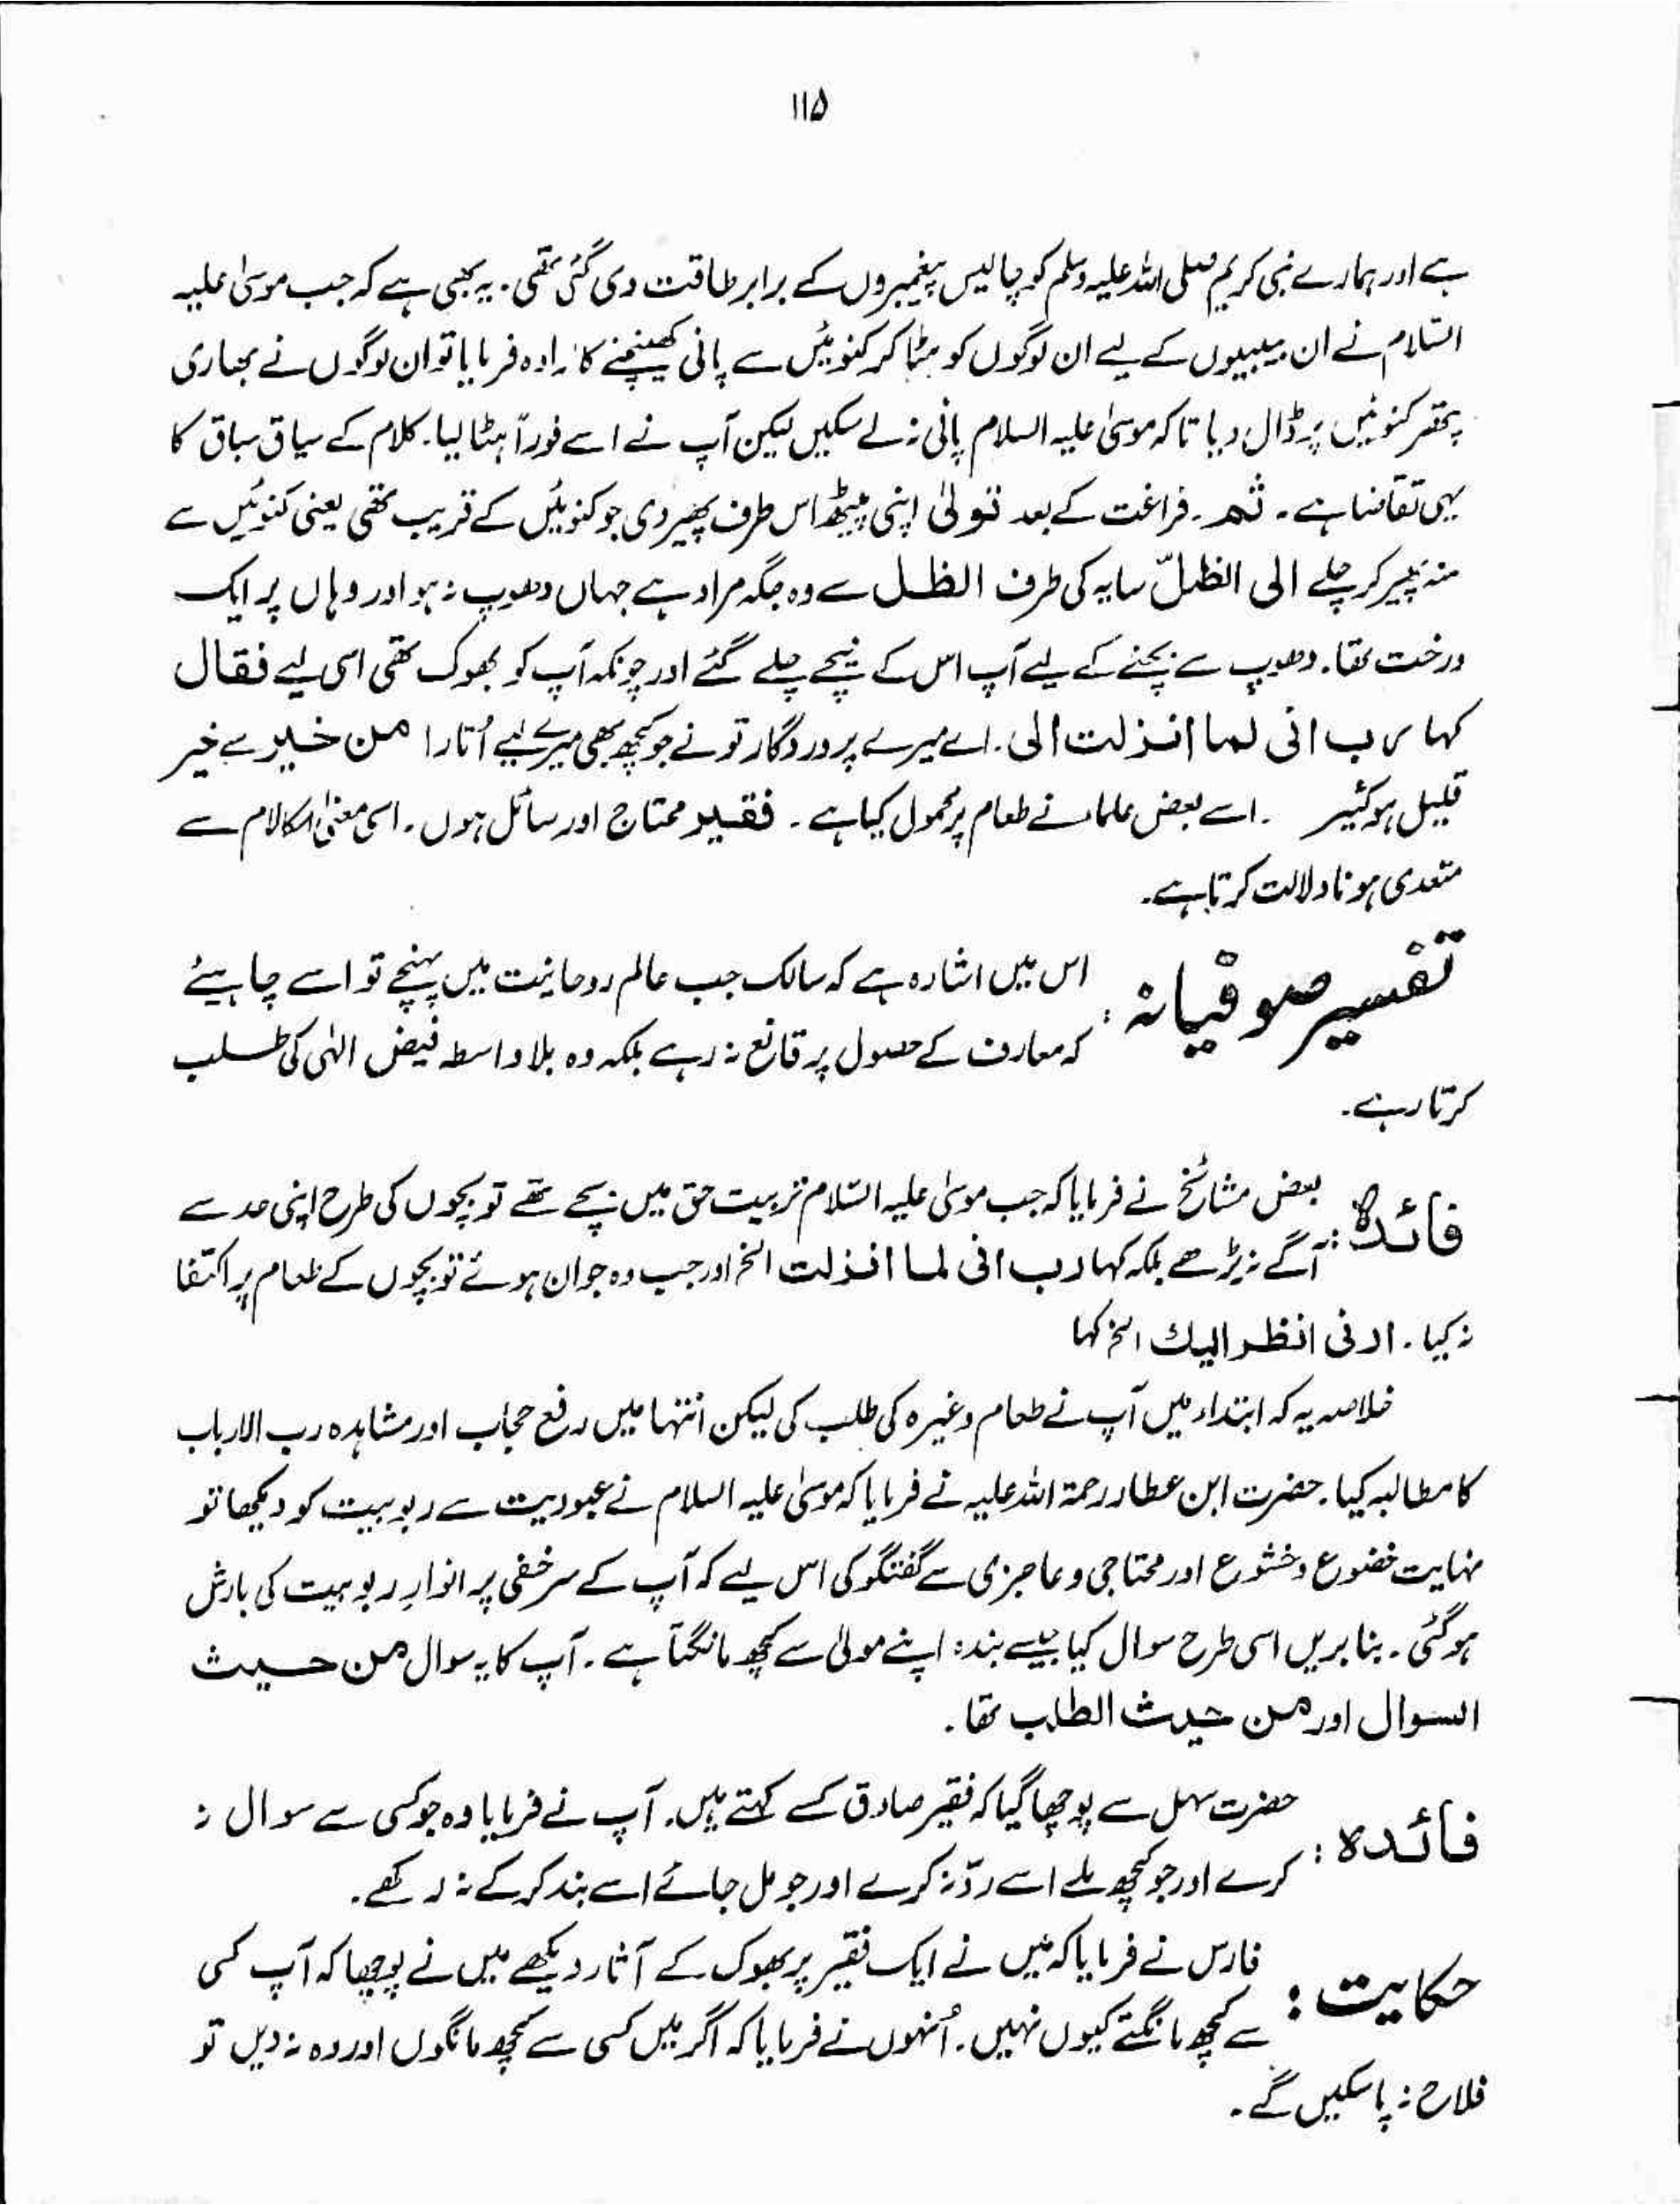 ۱۱۵
ہے اور ہمارے نبی کریم صلی اللہ علیہ وسلم کو چالیس پیغمبروں کے برابر طاقت دی گئی تھی۔ یہ بھی ہے کہ جب موسیٰ علیہ
السّلام نے ان بیبیوں کے لیے ان لوگوں کو ہٹا کر کنوئیں سے پانی کھینچنے کا ارادہ فرمایا تو ان لوگوں نے بھاری
پتھر کنوئیں پر ڈال دیا تاکہ موسیٰ علیہ السلام پانی نہ لے سکیں لیکن آپ نے اسے فوراً ہٹا لیا۔ کلام کے سیاق سباق کا
یہی تقاضا ہے۔ ثم۔ فراغت کے بعد تولیٰ اپنی پیٹھ اس طرف پھیر دی جو کنوئیں کے قریب تھی یعنی کنوئیں سے
منہ پھیر کر چلے الی الظلّ سایہ کی طرف الظل سے وہ جگہ مراد ہے جہاں دھوپ نہ ہو اور وہاں پر ایک
درخت تھا۔ دھوپ سے بچنے کے لیے آپ اس کے نیچے چلے گئے اور چونکہ آپ کو بھوک تھی اسی لیے فقال
کہا رب انی لما انزلت الی۔ اے میرے پروردگار تو نے جو کچھ بھی میرے لیے اُتارا من خیر سے خیر
قلیل ہو کثیر ۔ اسے بعض علماء نے طعام پر محمول کیا ہے۔ فقیر محتاج اور سائل ہوں۔ اسی معنیٰ کالام سے
متعدی ہونا دلالت کرتا ہے۔
تفسیر صوفیانہ : اس میں اشارہ ہے کہ سالک جب عالم روحانیت میں پہنچے تو اسے چاہیئے
کہ معارف کے حصول پر قانع نہ رہے بلکہ وہ بلا واسطہ فیض الٰہی کی طلب
کرتا رہے۔
فائدہ : بعض مشائخ نے فرمایا کہ جب موسیٰ علیہ السّلام تربیت حق میں بچے تھے تو بچوں کی طرح اپنی حد سے
آگے نہ بڑھے بلکہ کہا رب انی لما انزلت الخ اور جب وہ جوان ہوئے تو بچوں کے طعام پر اکتفا
نہ کیا۔ ارنی انظر الیك الخ کہا
خلاصہ یہ کہ ابتداء میں آپ نے طعام وغیرہ کی طلب کی لیکن انتہا میں رفع حجاب اور مشاہدہ رب الارباب
کا مطالبہ کیا۔ حضرت ابن عطار رحمۃ اللہ علیہ نے فرمایا کہ موسیٰ علیہ السلام نے عبودیت سے ربوبیت کو دیکھا تو
نہایت خضوع و خشوع اور محتاجی و عاجزی سے گفتگو کی اس لیے کہ آپ کے سر خفی پر انوارِ ربوبیت کی بارش
ہو گئی۔ بنا بریں اسی طرح سوال کیا جیسے بندہ اپنے مولیٰ سے کچھ مانگتا ہے۔ آپ کا یہ سوال من حیث
السوال اور من حیث الطلب تھا۔
فائدہ : حضرت سہل سے پوچھا گیا کہ فقیر صادق کسے کہتے ہیں۔ آپ نے فرمایا وہ جو کسی سے سوال نہ
کرے اور جو کچھ ملے اسے ردّ نہ کرے اور جو مل جائے اسے بند کر کے نہ رکھے۔
حکایت : فارس نے فرمایا کہ میں نے ایک فقیر پر بھوک کے آثار دیکھے میں نے پوچھا کہ آپ کسی
سے کچھ مانگتے کیوں نہیں۔ اُنہوں نے فرمایا کہ اگر میں کسی سے کچھ مانگوں اور وہ نہ دیں تو
فلاح نہ پا سکیں گے۔